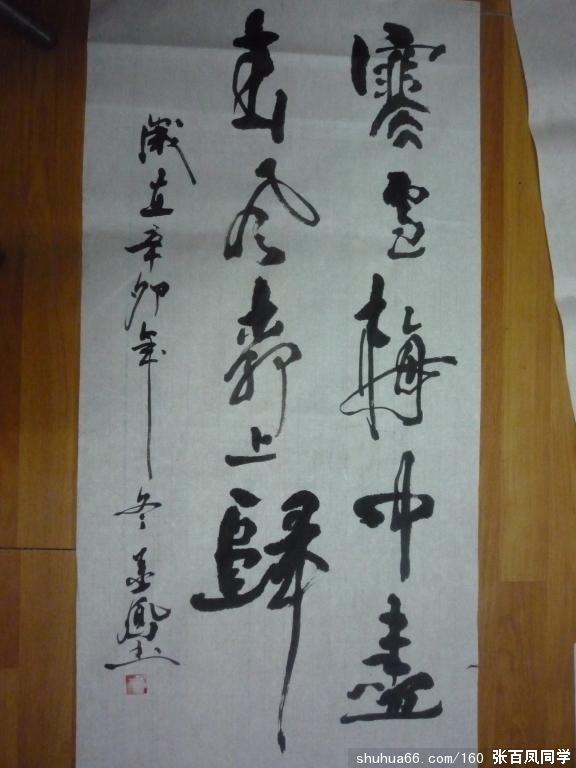 寒雪梅中盡
春风柳上歸
歲在辛卯年 冬 鳳书
shuhua66.com/160 张百凤同学